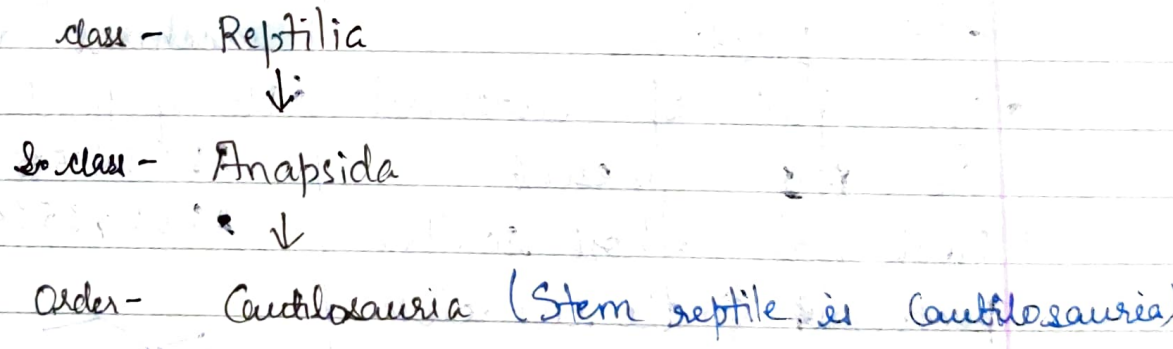 class - Reptilia
↓
S. class - Anapsida
↓
Order - Cautilosauria (Stem reptile is Cautilosauria)